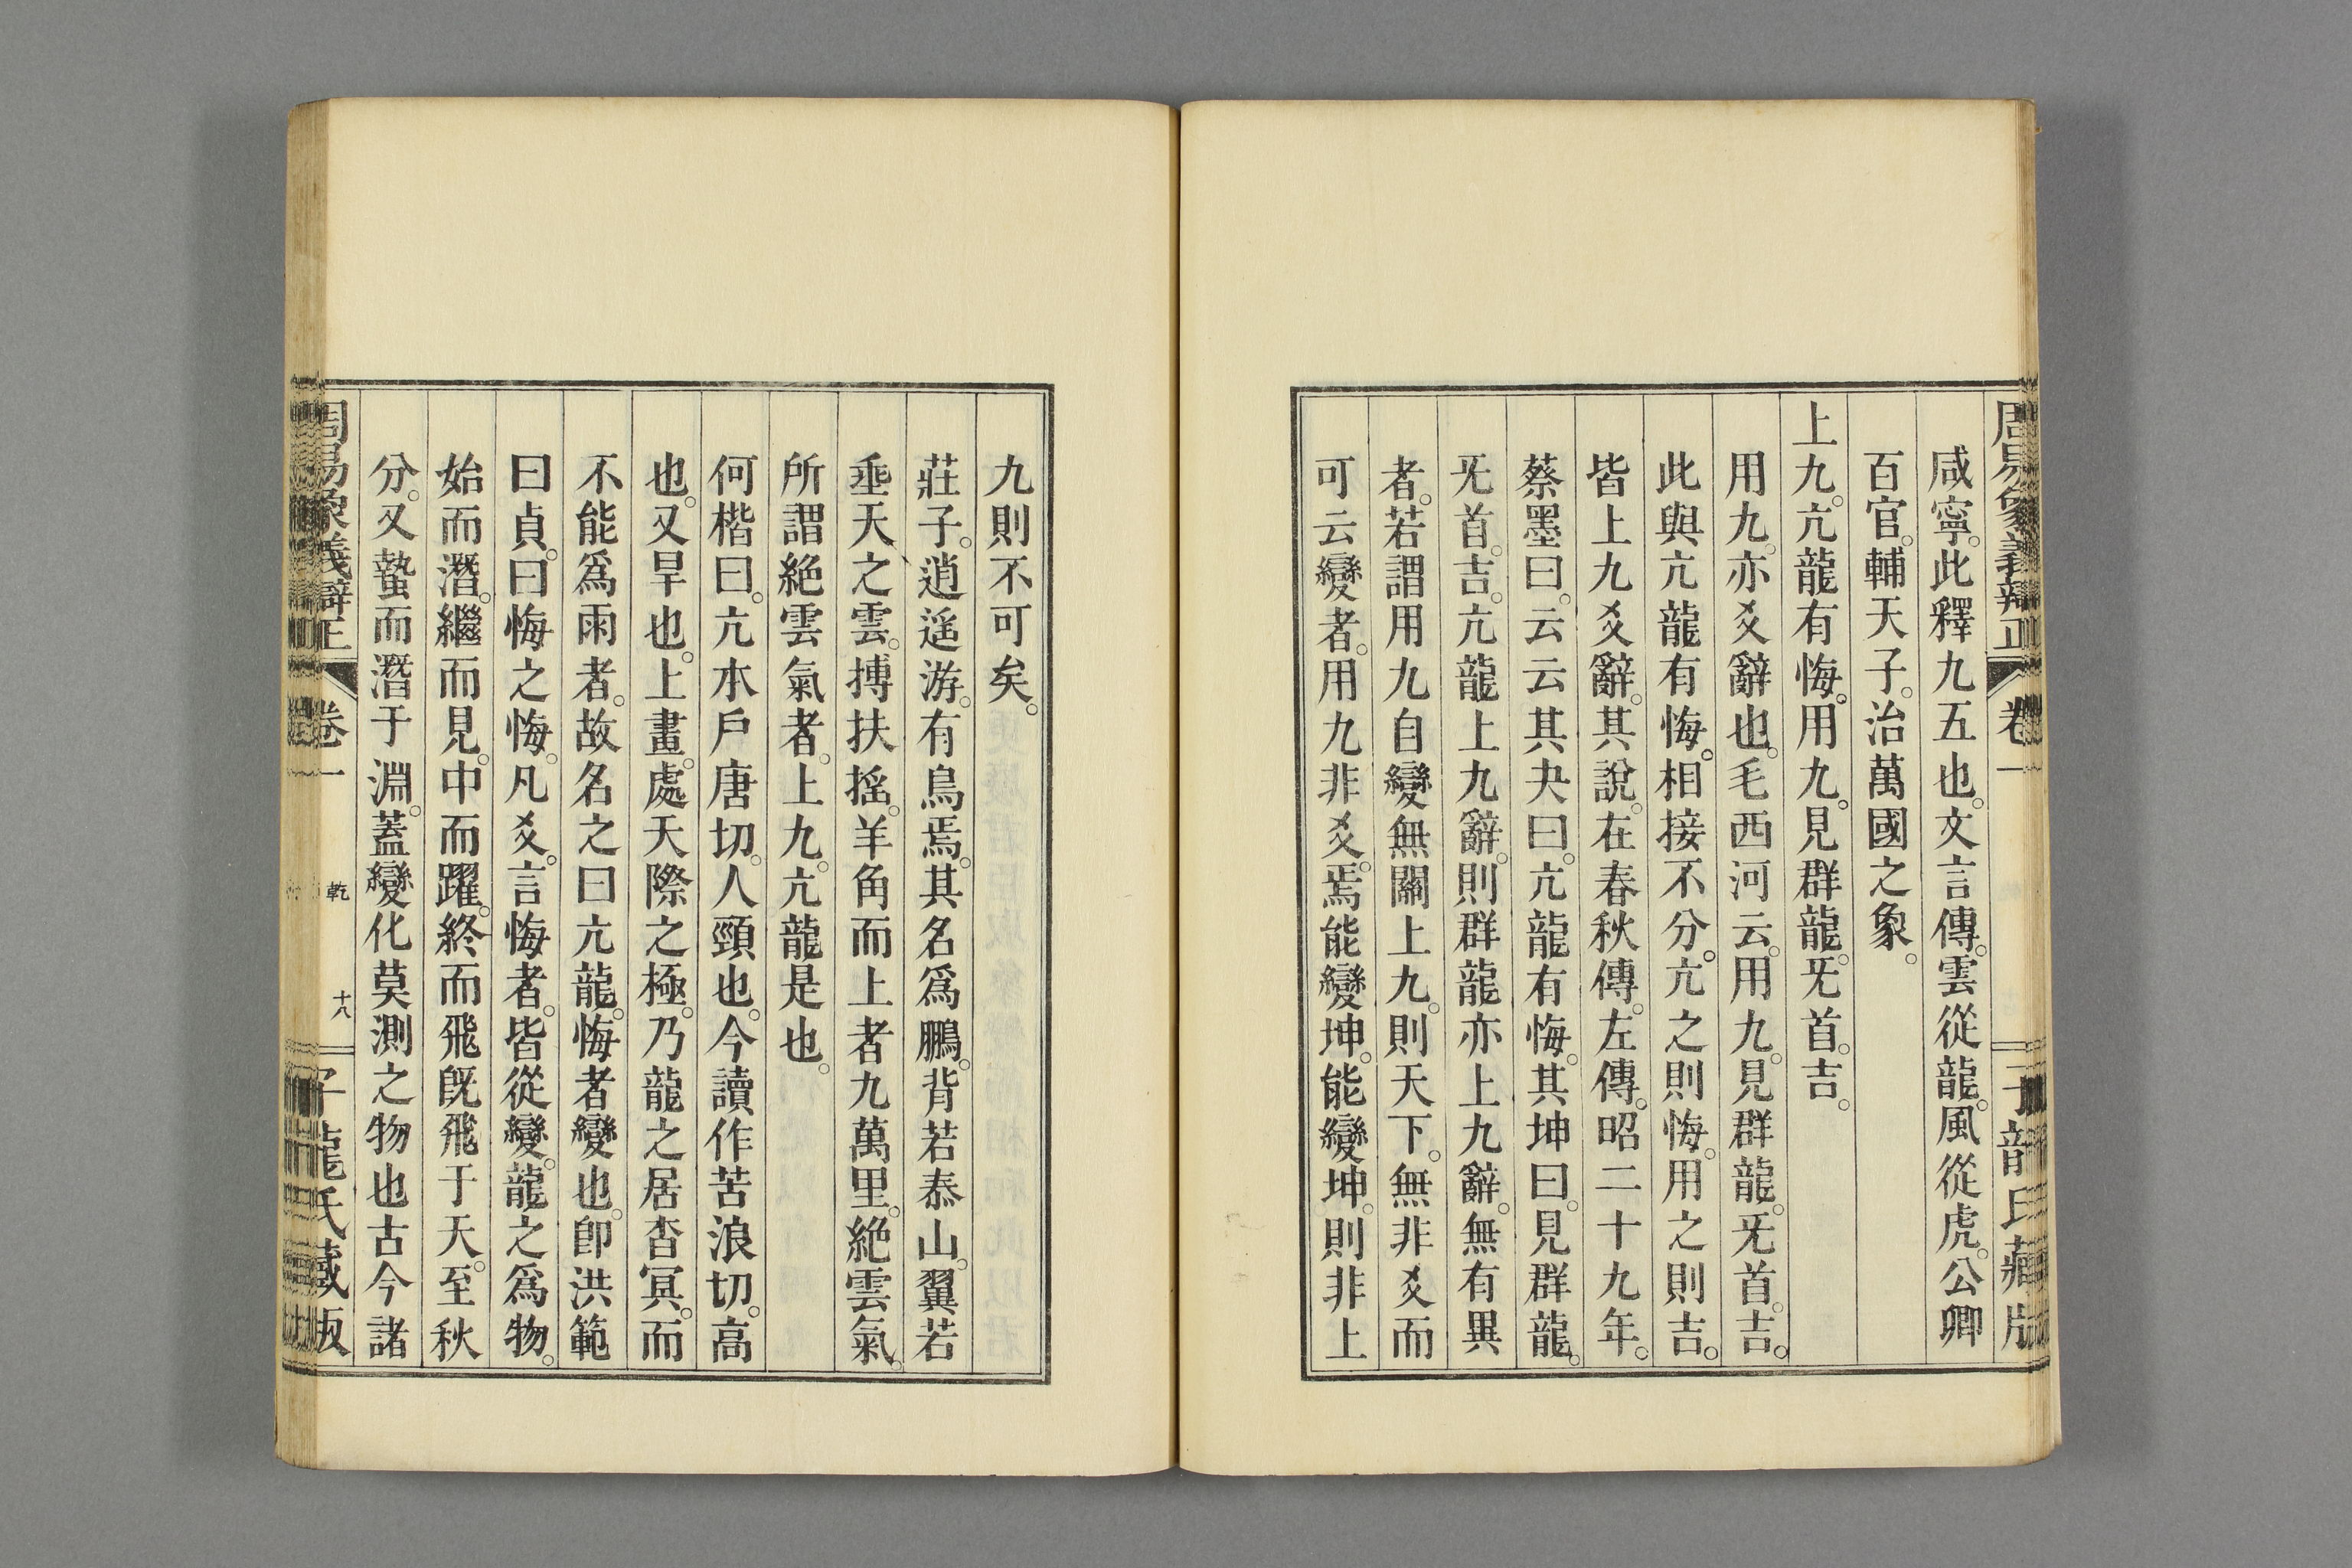 周易象義辯正 卷一 子龍氏藏版
咸寧。此釋九五也。文言傳。雲從龍。風從虎。公卿
百官。輔天子。治萬國之象。
上九。亢龍有悔。用九。見群龍。旡首。吉。
用九。亦爻辭也。毛西河云。用九。見群龍。旡首。吉。
此與亢龍有悔。相接不分。亢之則悔。用之則吉。
皆上九爻辭。其說。在春秋傳。左傳。昭二十九年。
蔡墨曰。云云其夬曰。亢龍有悔。其坤曰。見群龍。
旡首。吉。亢龍上九辭。則群龍亦上九辭。無有異
者。若謂用九自變無關上九。則天下。無非爻而
可云變者。用九非爻。焉能變坤。能變坤。則非上
九則不可矣。
莊子。逍遙游。有鳥焉。其名爲鵬。背若泰山。翼若
垂天之雲。搏扶搖。羊角而上者九萬里。絕雲氣。
所謂絕雲氣者。上九。亢龍是也。
何楷曰。亢本戶唐切。人頸也。今讀作苦浪切。高
也。又旱也。上畫。處天際之極。乃龍之居杳冥。而
不能爲雨者。故名之曰亢龍。悔者變也。卽洪範
曰貞。曰悔之悔。凡爻。言悔者。皆從變。龍之爲物。
始而潛。繼而見。中而躍。終而飛旣飛于天。至秋
分。又蟄而潛于淵。蓋變化莫測之物也古今諸
周易象義辯正 卷一 乾 十八 子龍氏藏版